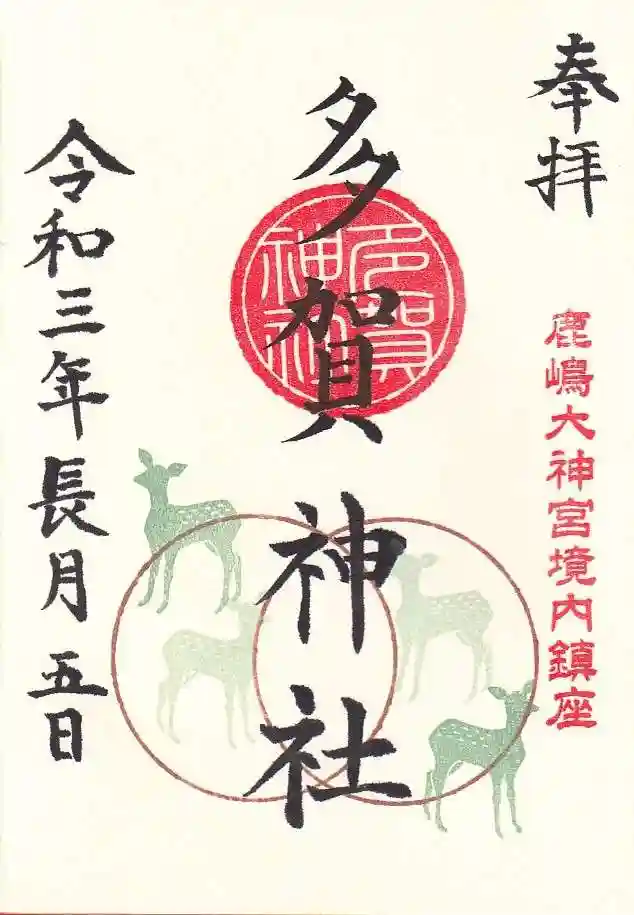 奉拝
鹿嶋大神宮境内鎮座
多賀神社
多賀神社
令和三年長月五日